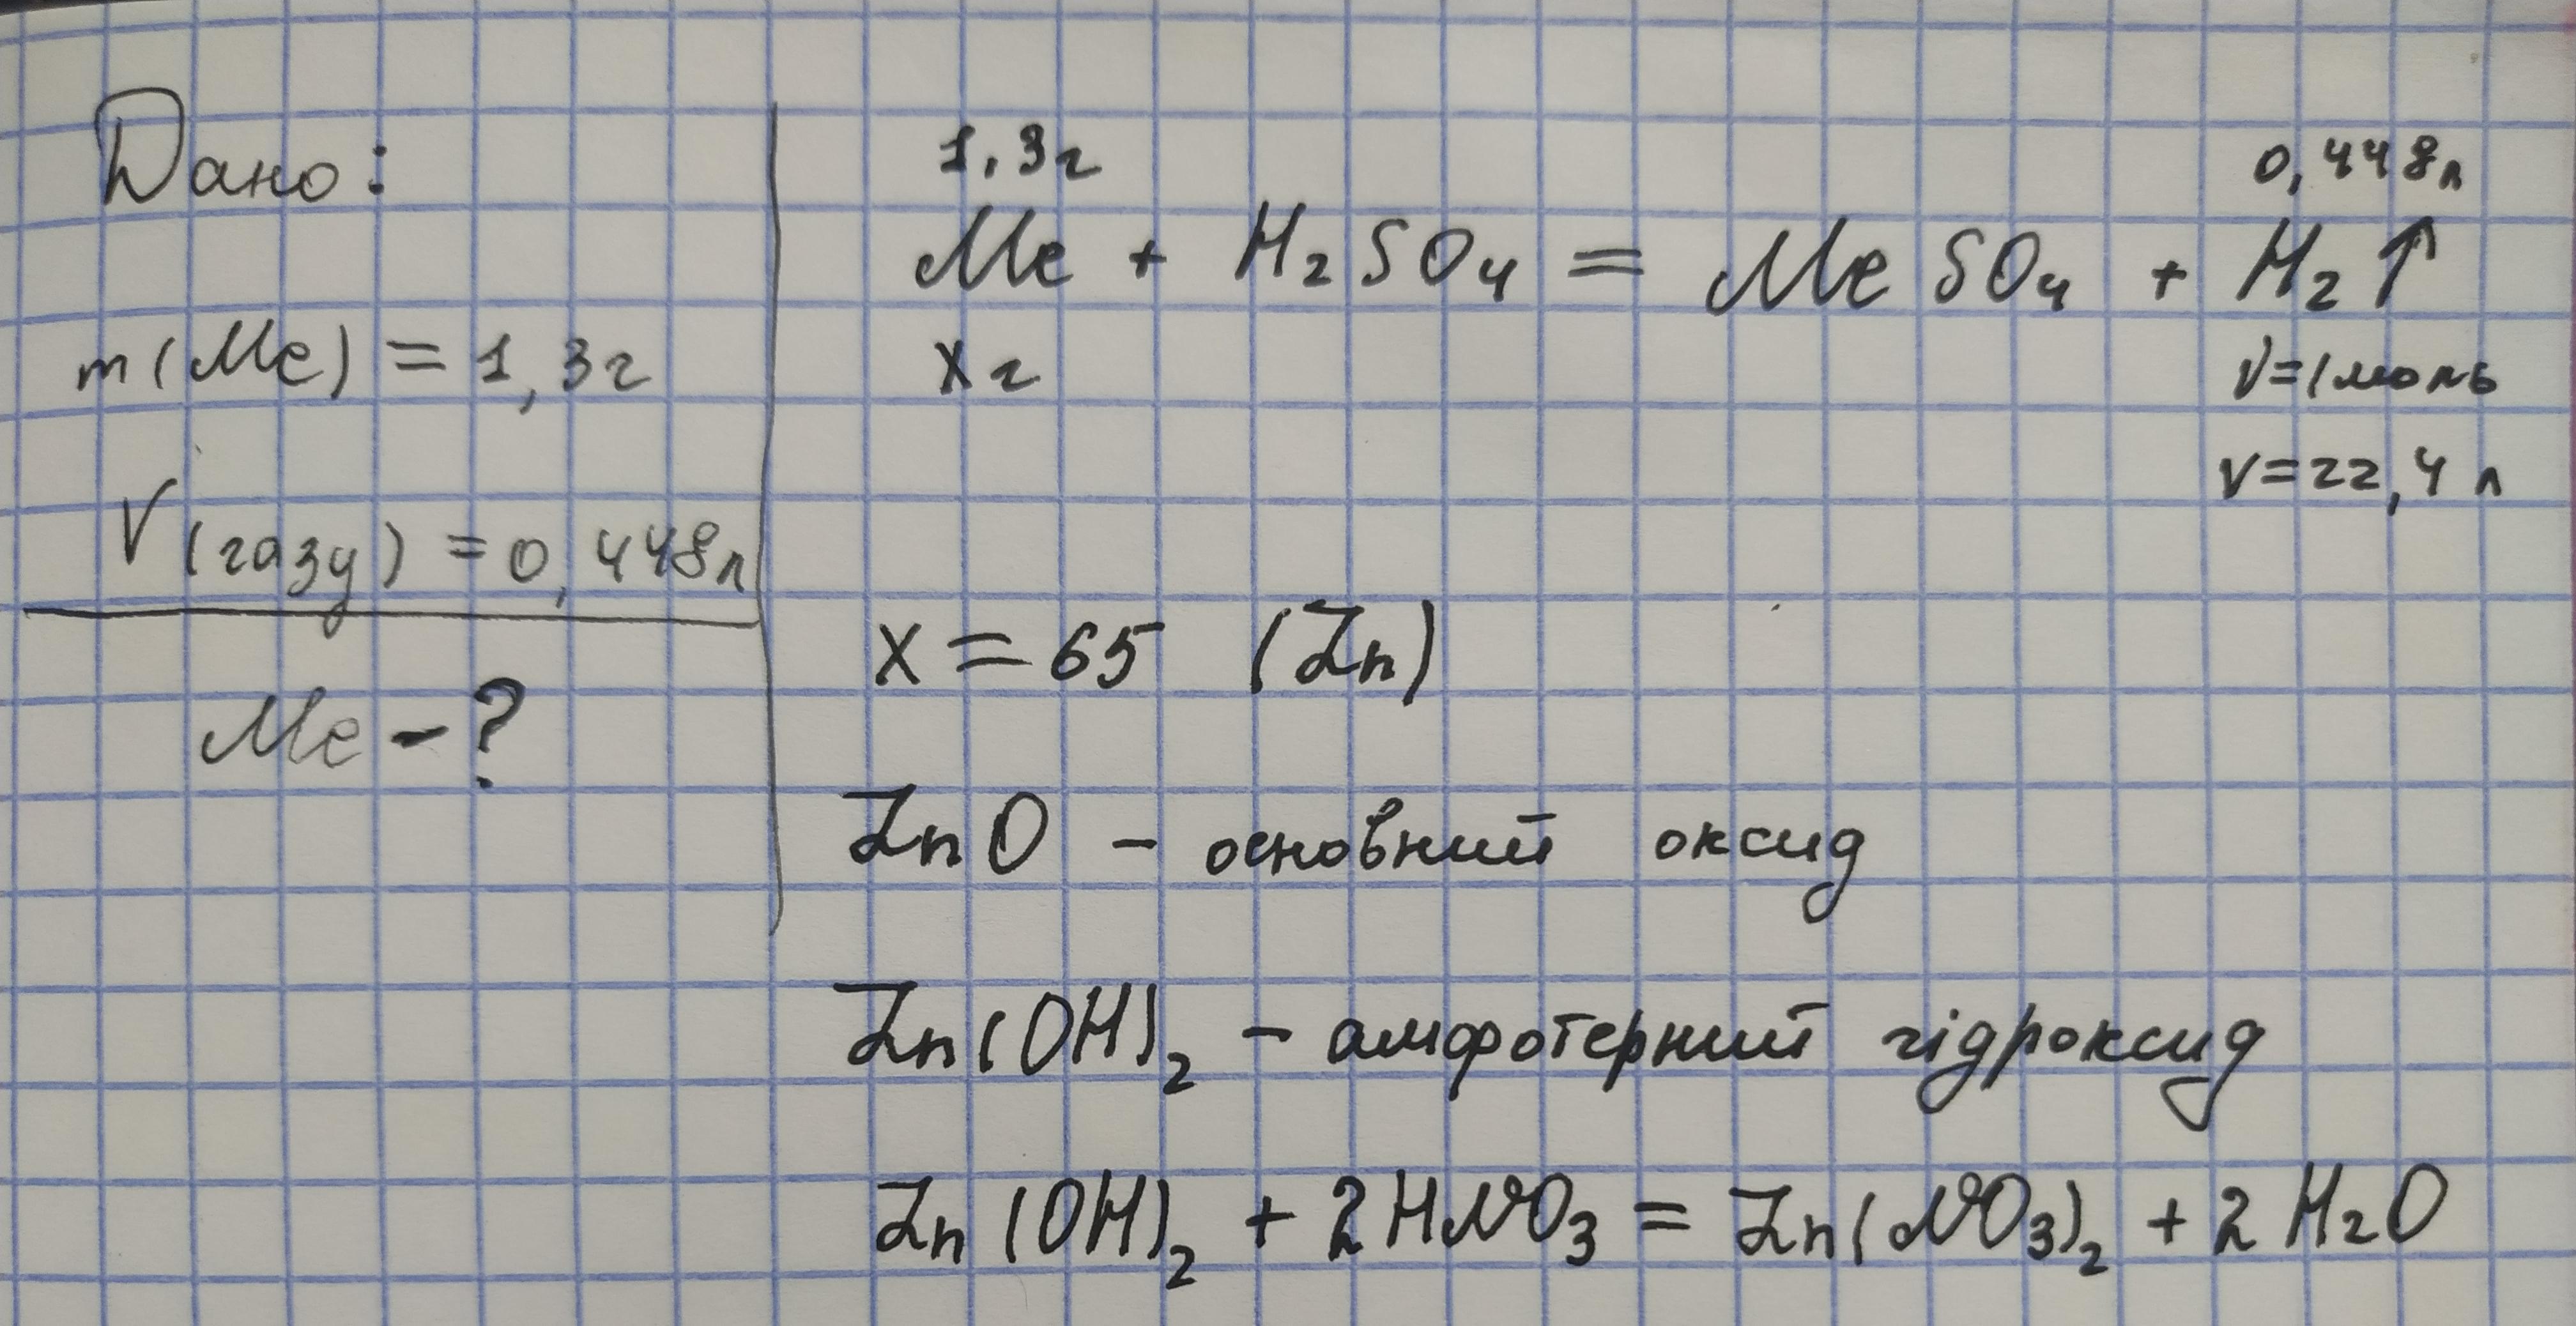 Дано:
m(Me) = 1,3г
V(газу) = 0,448л
Me - ?
1,3г 0,448л
Me + H₂SO₄ = MeSO₄ + H₂↑
Xг ν=1моль
V=22,4л
X = 65 (Zn)
ZnO - основний оксид
Zn(OH)₂ - амфотерний гідроксид
Zn(OH)₂ + 2HNO₃ = Zn(NO₃)₂ + 2H₂O